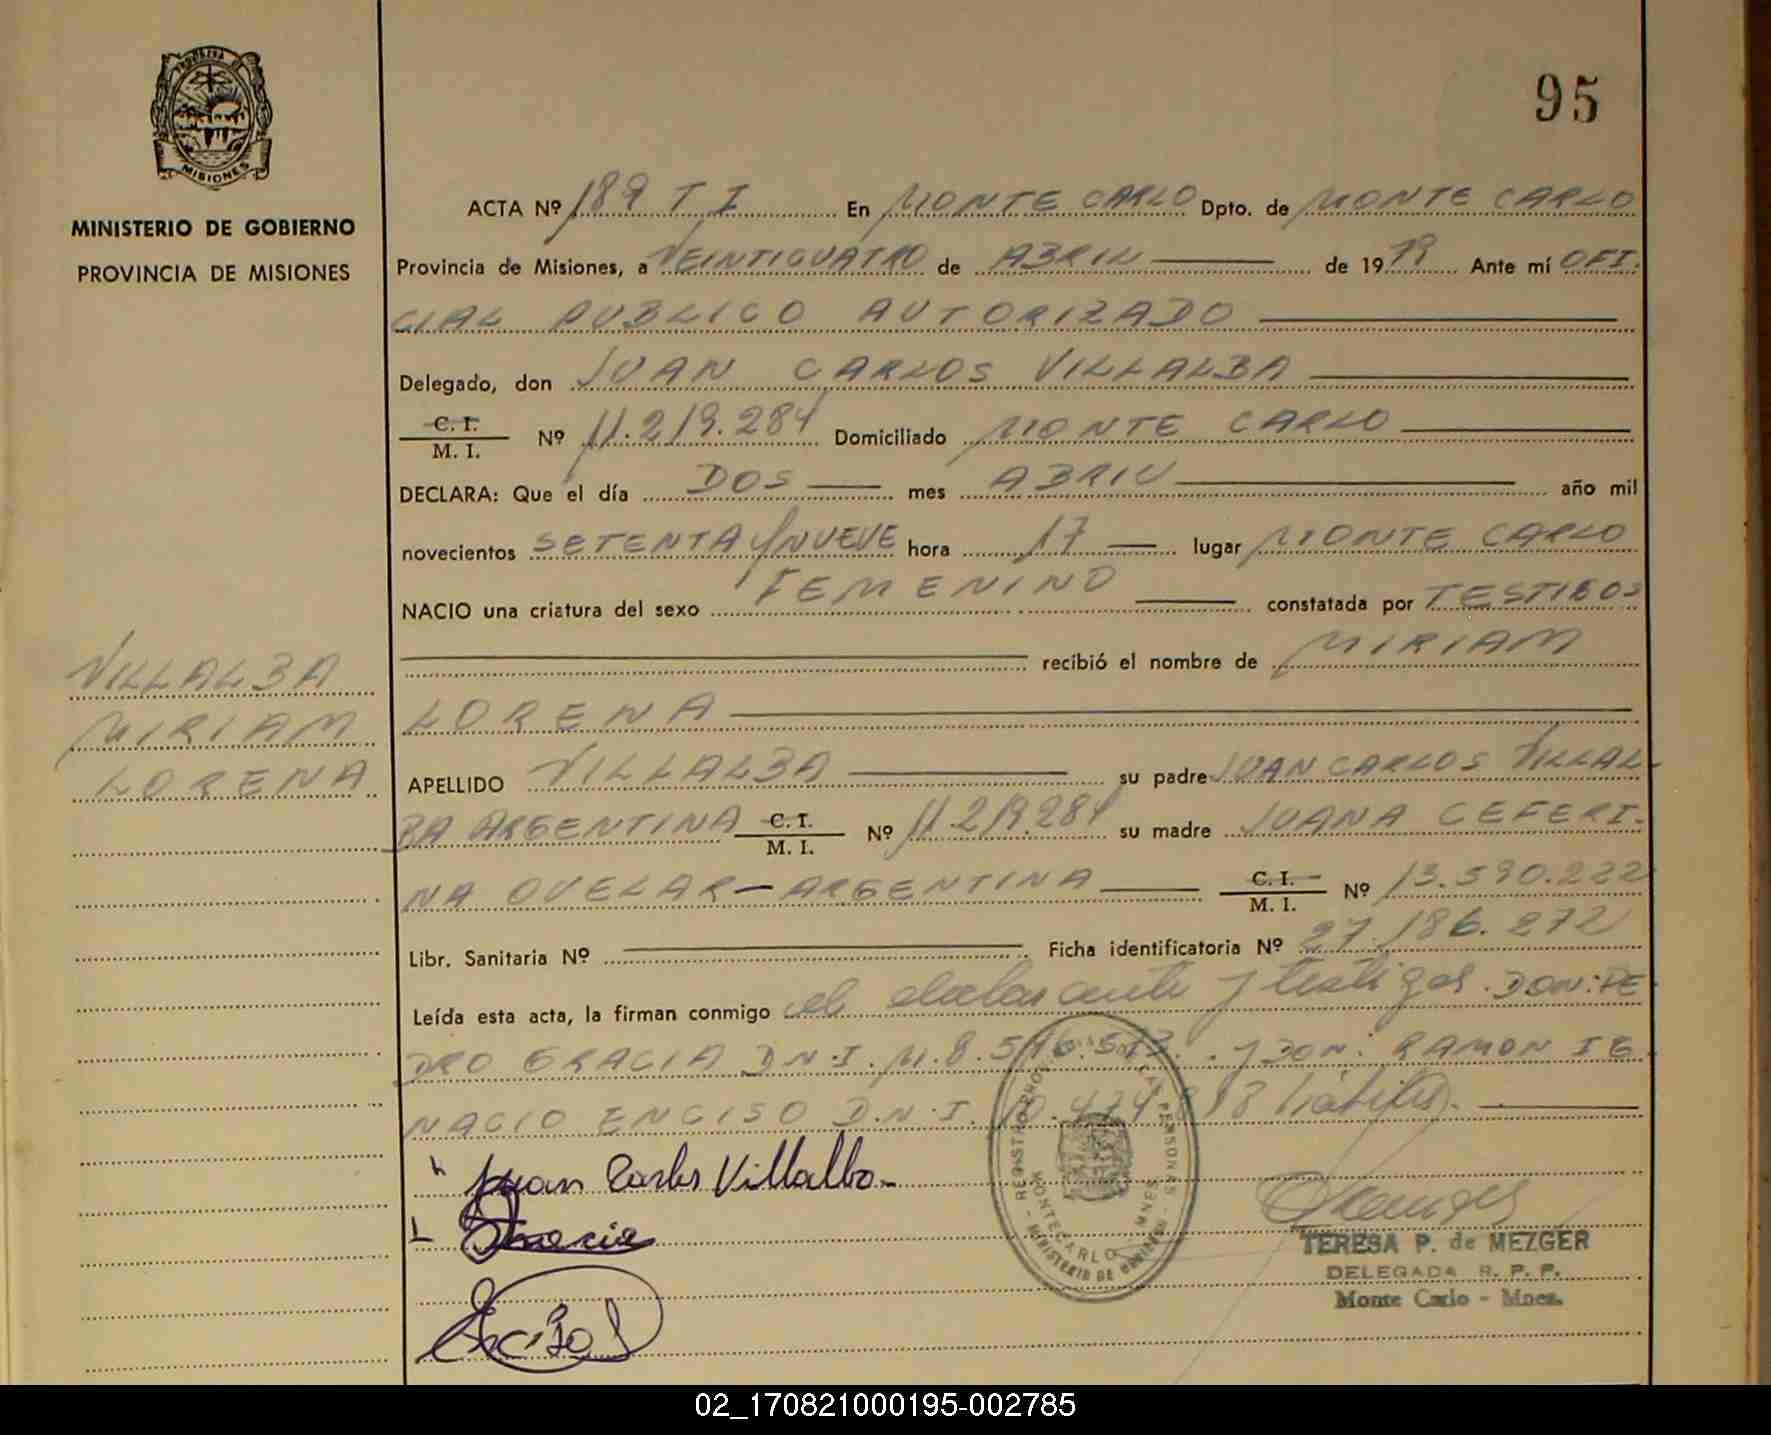 95
MINISTERIO DE GOBIERNO
PROVINCIA DE MISIONES
MISIONES
VILLALBA
MIRIAM
LORENA
ACTA Nº 189 T I En MONTE CARLO Dpto. de MONTE CARLO
Provincia de Misiones, a VEINTICUATRO de ABRIL de 1979 Ante mí OFI-
CIAL PUBLICO AUTORIZADO
Delegado, don JUAN CARLOS VILLALBA
C. I.
M. I. Nº 11.219.284 Domiciliado MONTE CARLO
DECLARA: Que el día DOS mes ABRIL año mil
novecientos SETENTA y NUEVE hora 17 lugar MONTE CARLO
NACIO una criatura del sexo FEMENINO constatada por TESTIGOS
recibió el nombre de MIRIAM
LORENA
APELLIDO VILLALBA su padre JUAN CARLOS VILLAL-
BA ARGENTINA C. I. M. I. Nº 11.219.284 su madre JUANA CEFERI-
NA OVELAR - ARGENTINA C. I. M. I. Nº 13.590.222
Libr. Sanitaria Nº Ficha identificatoria Nº 27.186.272
Leída esta acta, la firman conmigo el declarante y testigos. DON: PE-
DRO GRACIA D.N.I. M. 8.546.513. y DON: RAMON IG-
NACIO ENCISO D.N.I. 10.474.818 hábiles.
Juan Carlos Villalba
Gracia
REGISTRO PROVINCIAL DE LAS PERSONAS
MONTECARLO MNES
MINISTERIO DE GOBIERNO
TERESA P. de MEZGER
DELEGADA R. P. P.
Monte Carlo - Mnes.
02_170821000195-002785